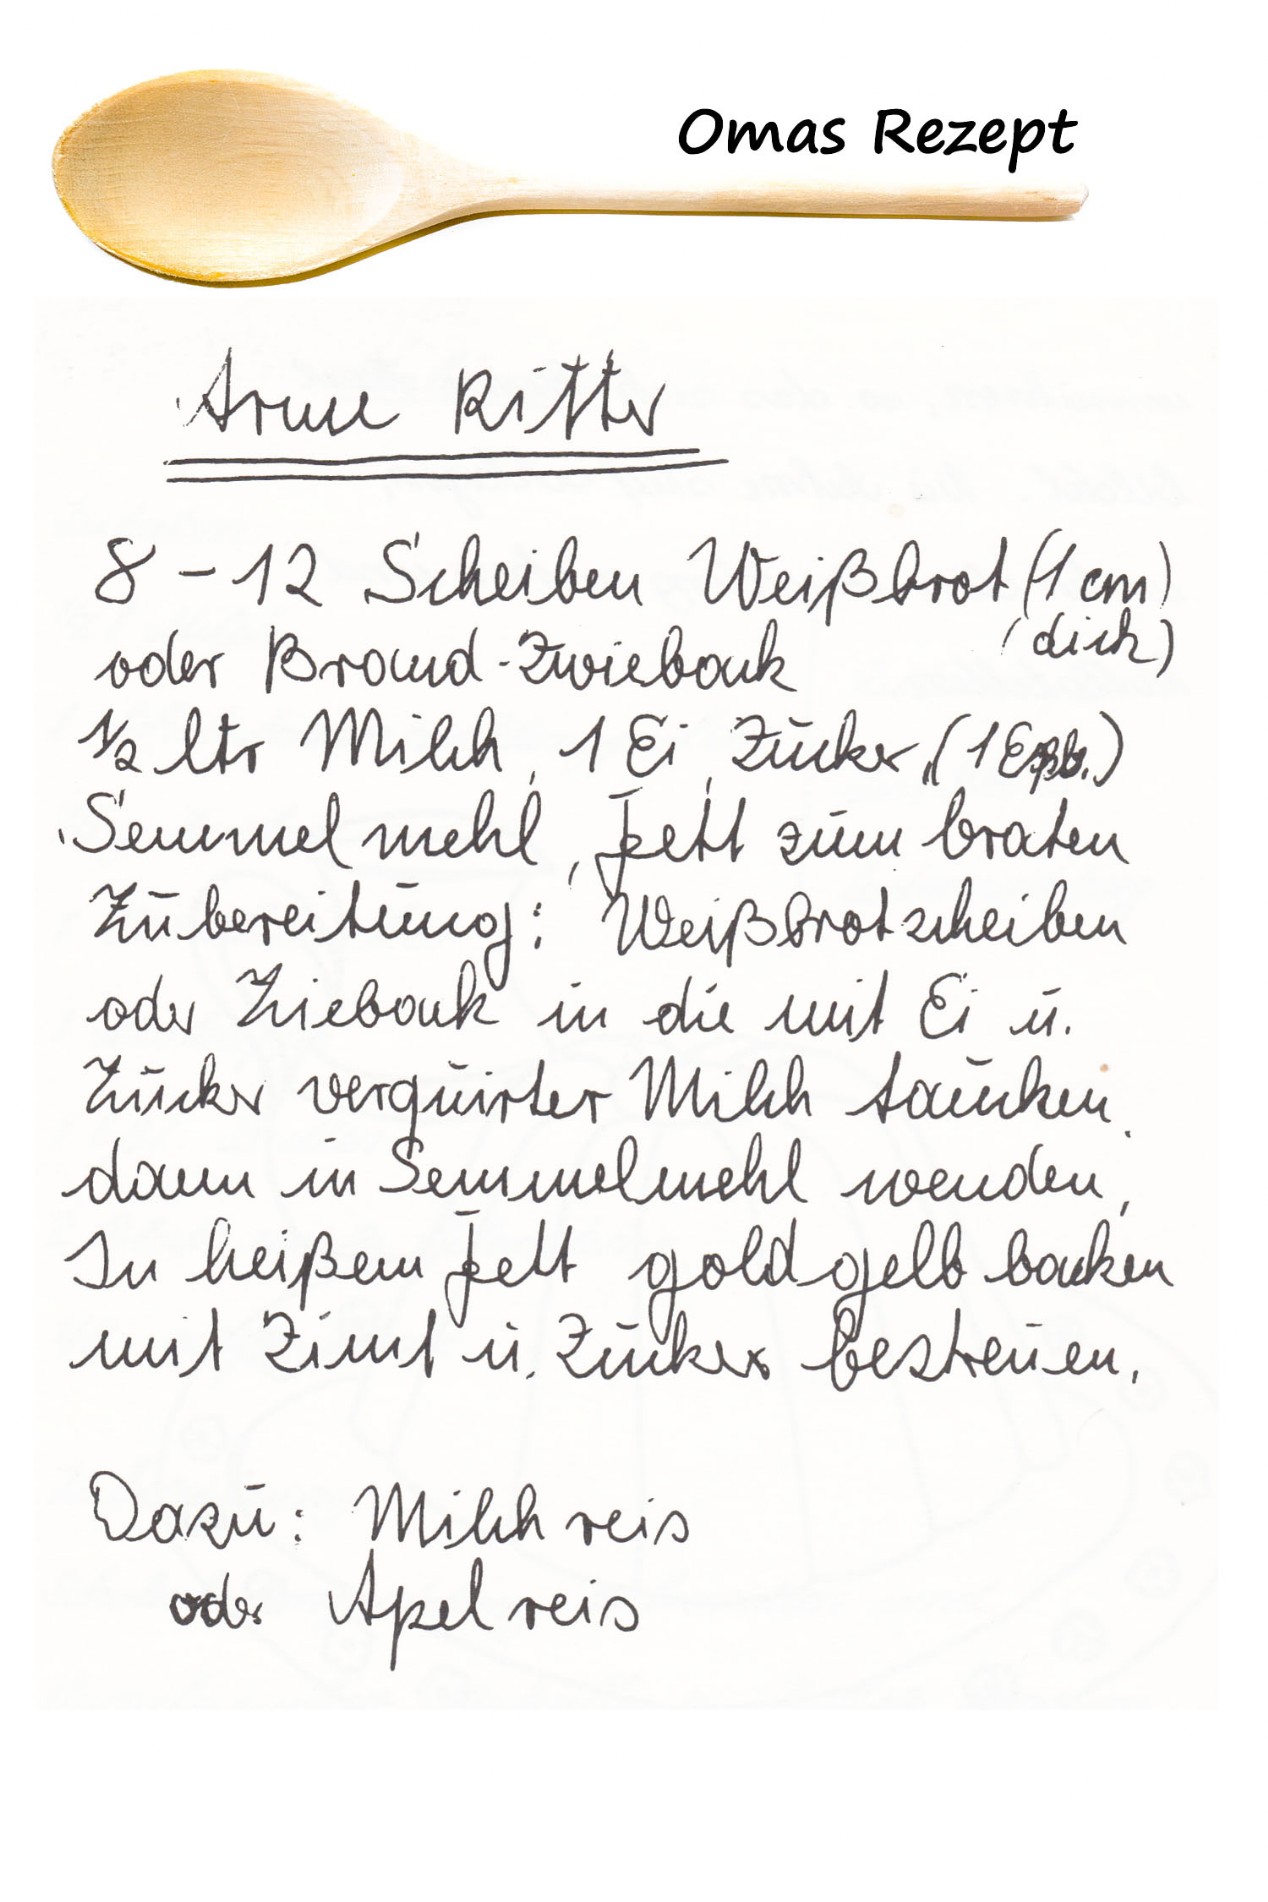 Omas Rezept
Arme Ritter
8 - 12 Scheiben Weißbrot (1 cm)
(dick)
oder Brand-Zwieback
1/2 ltr Milch, 1 Ei, Zucker, (1 Eßl.)
Semmelmehl, Fett zum braten
Zubereitung: Weißbrotscheiben
oder Zieback in die mit Ei u.
Zucker verquirter Milch taucken.
dann in Semmelmehl wenden,
In heißem Fett goldgelb backen
mit Zimt u. Zucker bestreuen.
Dazu: Milchreis
oder Apelreis